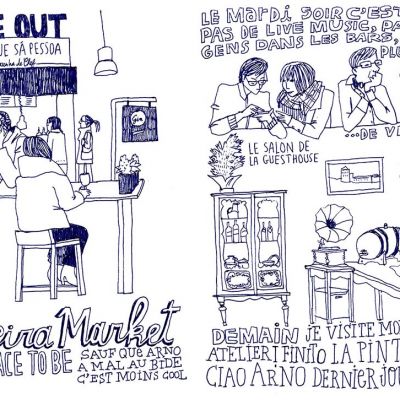 E OUT
UE SÁ PESSOA
eira Market
ACE TO BE
SAUF QUE ARNO
A MAL AU BIDE
C'EST MOINS COOL
LE MARDI SOIR C'EST
PAS DE LIVE MUSIC, PA
GENS DANS LES BARS,
PLU
...DE VI
LE SALON DE
LA GUESTHOUSE
DEMAIN JE VISITE MO
ATELIER! FINITO LA PINT
CIAO ARNO DERNIER JOU